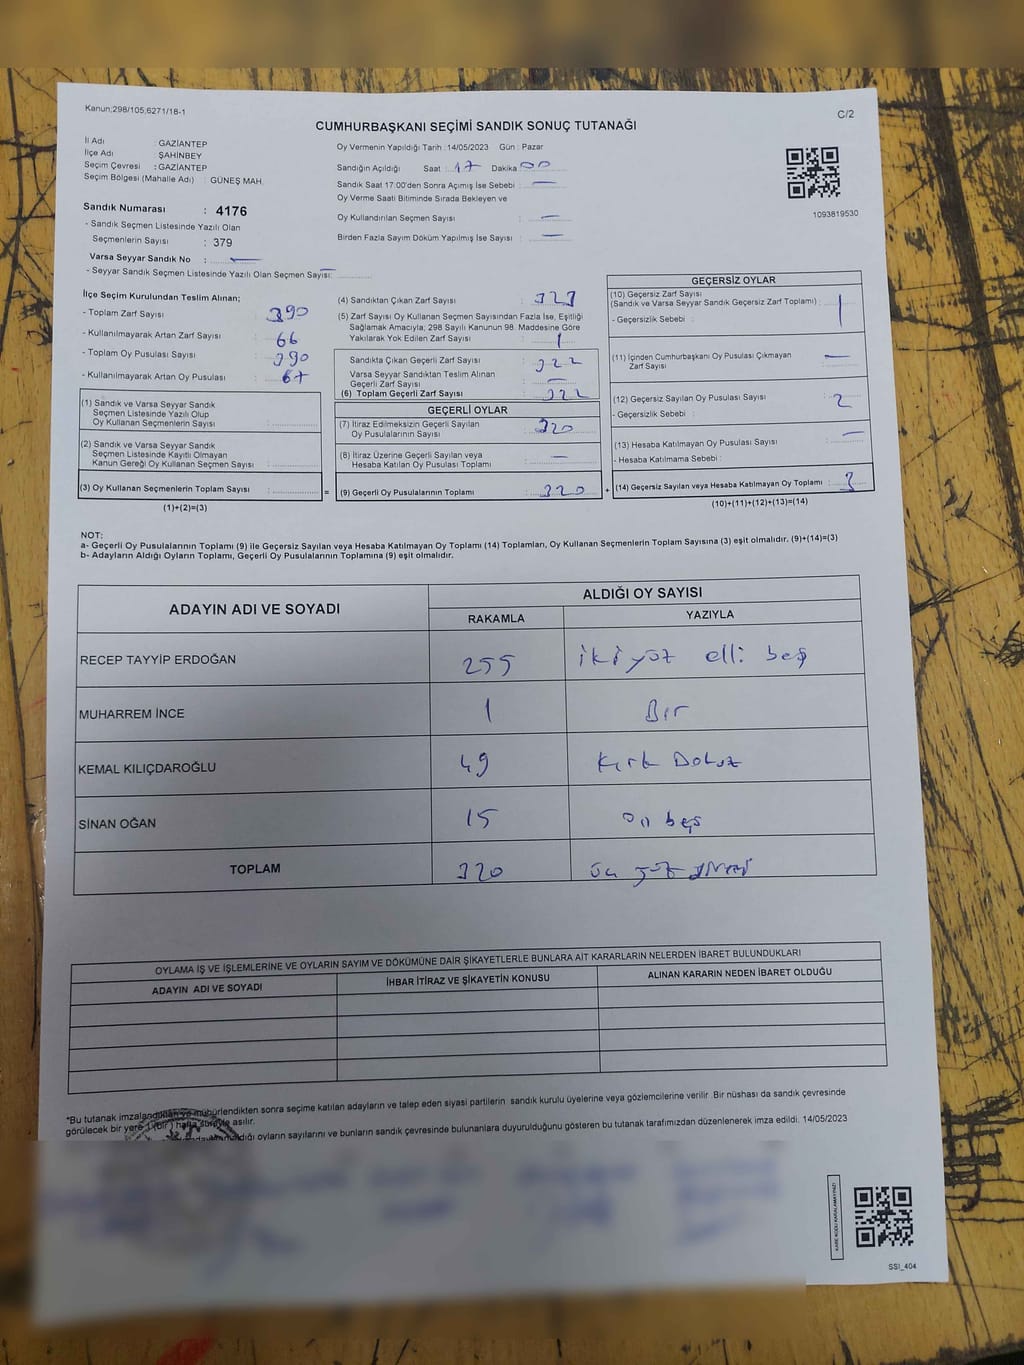 Kanun;298/105;6271/18-1
C/2
CUMHURBAŞKANI SEÇİMİ SANDIK SONUÇ TUTANAĞI
İl Adı : GAZİANTEP
İlçe Adı : ŞAHİNBEY
Seçim Çevresi : GAZİANTEP
Seçim Bölgesi (Mahalle Adı) : GÜNEŞ MAH.
Sandık Numarası : 4176
- Sandık Seçmen Listesinde Yazılı Olan
Seçmenlerin Sayısı : 379
Varsa Seyyar Sandık No : —
- Seyyar Sandık Seçmen Listesinde Yazılı Olan Seçmen Sayısı: —
Oy Vermenin Yapıldığı Tarih : 14/05/2023 Gün : Pazar
Sandığın Açıldığı Saat : 17 Dakika : 00
Sandık Saat 17:00'den Sonra Açımış İse Sebebi : —
Oy Verme Saati Bitiminde Sırada Bekleyen ve
Oy Kullandırılan Seçmen Sayısı : —
Birden Fazla Sayım Döküm Yapılmış İse Sayısı : —
1093819530
İlçe Seçim Kurulundan Teslim Alınan;
- Toplam Zarf Sayısı : 390
- Kullanılmayarak Artan Zarf Sayısı : 66
- Toplam Oy Pusulası Sayısı : 390
- Kullanılmayarak Artan Oy Pusulası : 67
(1) Sandık ve Varsa Seyyar Sandık
Seçmen Listesinde Yazılı Olup
Oy Kullanan Seçmenlerin Sayısı :
(2) Sandık ve Varsa Seyyar Sandık
Seçmen Listesinde Kayıtlı Olmayan
Kanun Gereği Oy Kullanan Seçmen Sayısı :
(3) Oy Kullanan Seçmenlerin Toplam Sayısı : =
(1)+(2)=(3)
(4) Sandıktan Çıkan Zarf Sayısı : 323
(5) Zarf Sayısı Oy Kullanan Seçmen Sayısından Fazla İse, Eşitliği
Sağlamak Amacıyla; 298 Sayılı Kanunun 98. Maddesine Göre
Yakılarak Yok Edilen Zarf Sayısı : 1
Sandıkta Çıkan Geçerli Zarf Sayısı : 322
Varsa Seyyar Sandıktan Teslim Alınan
Geçerli Zarf Sayısı : —
(6) Toplam Geçerli Zarf Sayısı : 322
GEÇERLİ OYLAR
(7) İtiraz Edilmeksizin Geçerli Sayılan
Oy Pusulalarının Sayısı : 320
(8) İtiraz Üzerine Geçerli Sayılan veya
Hesaba Katılan Oy Pusulası Toplamı : —
(9) Geçerli Oy Pusulalarının Toplamı : 320 +
GEÇERSİZ OYLAR
(10) Geçersiz Zarf Sayısı
(Sandık ve Varsa Seyyar Sandık Geçersiz Zarf Toplamı) : 1
- Geçersizlik Sebebi :
(11) İçinden Cumhurbaşkanı Oy Pusulası Çıkmayan
Zarf Sayısı : —
(12) Geçersiz Sayılan Oy Pusulası Sayısı : 2
- Geçersizlik Sebebi :
(13) Hesaba Katılmayan Oy Pusulası Sayısı : —
- Hesaba Katılmama Sebebi :
(14) Geçersiz Sayılan veya Hesaba Katılmayan Oy Toplamı : 3
(10)+(11)+(12)+(13)=(14)
NOT:
a- Geçerli Oy Pusulalarının Toplamı (9) ile Geçersiz Sayılan veya Hesaba Katılmayan Oy Toplamı (14) Toplamları, Oy Kullanan Seçmenlerin Toplam Sayısına (3) eşit olmalıdır. (9)+(14)=(3)
b- Adayların Aldığı Oyların Toplamı, Geçerli Oy Pusulalarının Toplamına (9) eşit olmalıdır.
ADAYIN ADI VE SOYADI
ALDIĞI OY SAYISI
RAKAMLA YAZIYLA
RECEP TAYYİP ERDOĞAN 255 ikiyüz elli beş
MUHARREM İNCE 1 Bir
KEMAL KILIÇDAROĞLU 49 Kırk Dokuz
SİNAN OĞAN 15 on beş
TOPLAM 320 üç yüz yirmi
OYLAMA İŞ VE İŞLEMLERİNE VE OYLARIN SAYIM VE DÖKÜMÜNE DAİR ŞİKAYETLERLE BUNLARA AİT KARARLARIN NELERDEN İBARET BULUNDUKLARI
ADAYIN ADI VE SOYADI İHBAR İTİRAZ VE ŞİKAYETİN KONUSU ALINAN KARARIN NEDEN İBARET OLDUĞU
*Bu tutanak imzalandıktan ve mühürlendikten sonra seçime katılan adayların ve talep eden siyasi partilerin sandık kurulu üyelerine veya gözlemcilerine verilir .Bir nüshası da sandık çevresinde
görülecek bir yere 1 (bir) hafta süreyle asılır.
oyların sayılarını ve bunların sandık çevresinde bulunanlara duyurulduğunu gösteren bu tutanak tarafımızdan düzenlenerek imza edildi. 14/05/2023
KARE KODU KARALAMAYINIZ!
SSI_404